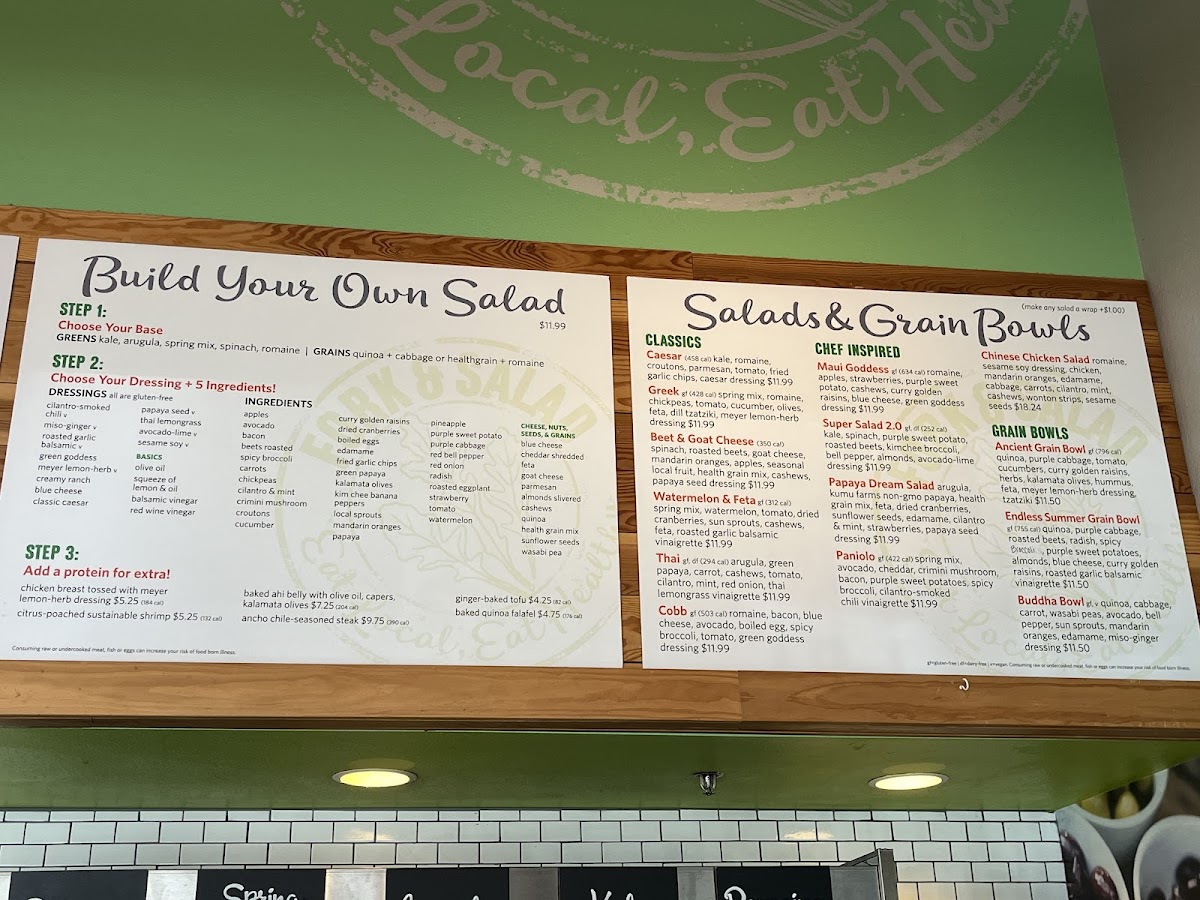 Local, Eat Hea
Build Your Own Salad
$11.99
STEP 1:
Choose Your Base
GREENS kale, arugula, spring mix, spinach, romaine | GRAINS quinoa + cabbage or healthgrain + romaine
STEP 2:
Choose Your Dressing + 5 Ingredients!
DRESSINGS all are gluten-free
cilantro-smoked
chili v
miso-ginger v
roasted garlic
balsamic v
green goddess
meyer lemon-herb v
creamy ranch
blue cheese
classic caesar
papaya seed v
thai lemongrass
avocado-lime v
sesame soy v
BASICS
olive oil
squeeze of
lemon & oil
balsamic vinegar
red wine vinegar
INGREDIENTS
apples
avocado
bacon
beets roasted
spicy broccoli
carrots
chickpeas
cilantro & mint
crimini mushroom
croutons
cucumber
curry golden raisins
dried cranberries
boiled eggs
edamame
fried garlic chips
green papaya
kalamata olives
kim chee banana
peppers
local sprouts
mandarin oranges
papaya
pineapple
purple sweet potato
purple cabbage
red bell pepper
red onion
radish
roasted eggplant
strawberry
tomato
watermelon
CHEESE, NUTS,
SEEDS, & GRAINS
blue cheese
cheddar shredded
feta
goat cheese
parmesan
almonds slivered
cashews
quinoa
health grain mix
sunflower seeds
wasabi pea
STEP 3:
Add a protein for extra!
chicken breast tossed with meyer
lemon-herb dressing $5.25 (184 cal)
citrus-poached sustainable shrimp $5.25 (132 cal)
baked ahi belly with olive oil, capers,
kalamata olives $7.25 (204 cal)
ancho chile-seasoned steak $9.75 (390 cal)
ginger-baked tofu $4.25 (82 cal)
baked quinoa falafel $4.75 (176 cal)
Consuming raw or undercooked meat, fish or eggs can increase your risk of food born illness.
Salads & Grain Bowls
(make any salad a wrap +$1.00)
CLASSICS
Caesar (458 cal) kale, romaine,
croutons, parmesan, tomato, fried
garlic chips, caesar dressing $11.99
Greek gf (428 cal) spring mix, romaine,
chickpeas, tomato, cucumber, olives,
feta, dill tzatziki, meyer lemon-herb
dressing $11.99
Beet & Goat Cheese (350 cal)
spinach, roasted beets, goat cheese,
mandarin oranges, apples, seasonal
local fruit, health grain mix, cashews,
papaya seed dressing $11.99
Watermelon & Feta gf (312 cal)
spring mix, watermelon, tomato, dried
cranberries, sun sprouts, cashews,
feta, roasted garlic balsamic
vinaigrette $11.99
Thai gf, df (294 cal) arugula, green
papaya, carrot, cashews, tomato,
cilantro, mint, red onion, thai
lemongrass vinaigrette $11.99
Cobb gf (503 cal) romaine, bacon, blue
cheese, avocado, boiled egg, spicy
broccoli, tomato, green goddess
dressing $11.99
CHEF INSPIRED
Maui Goddess gf (634 cal) romaine,
apples, strawberries, purple sweet
potato, cashews, curry golden
raisins, blue cheese, green goddess
dressing $11.99
Super Salad 2.0 gf, df (252 cal)
kale, spinach, purple sweet potato,
roasted beets, kimchee broccoli,
bell pepper, almonds, avocado-lime
dressing $11.99
Papaya Dream Salad arugula,
kumu farms non-gmo papaya, health
grain mix, feta, dried cranberries,
sunflower seeds, edamame, cilantro
& mint, strawberries, papaya seed
dressing $11.99
Paniolo gf (422 cal) spring mix,
avocado, cheddar, crimini mushroom,
bacon, purple sweet potatoes, spicy
broccoli, cilantro-smoked
chili vinaigrette $11.99
Chinese Chicken Salad romaine,
sesame soy dressing, chicken,
mandarin oranges, edamame,
cabbage, carrots, cilantro, mint,
cashews, wonton strips, sesame
seeds $18.24
GRAIN BOWLS
Ancient Grain Bowl gf (796 cal)
quinoa, purple cabbage, tomato,
cucumbers, curry golden raisins,
herbs, kalamata olives, hummus,
feta, meyer lemon-herb dressing,
tzatziki $11.50
Endless Summer Grain Bowl
gf (755 cal) quinoa, purple cabbage,
roasted beets, radish, spicy
Broccoli, purple sweet potatoes,
almonds, blue cheese, curry golden
raisins, roasted garlic balsamic
vinaigrette $11.50
Buddha Bowl gf, v quinoa, cabbage,
carrot, wasabi peas, avocado, bell
pepper, sun sprouts, mandarin
oranges, edamame, miso-ginger
dressing $11.50
gf=gluten-free | df=dairy free | v=vegan. Consuming raw or undercooked meat, fish or eggs can increase your risk of food born illness.
Spring